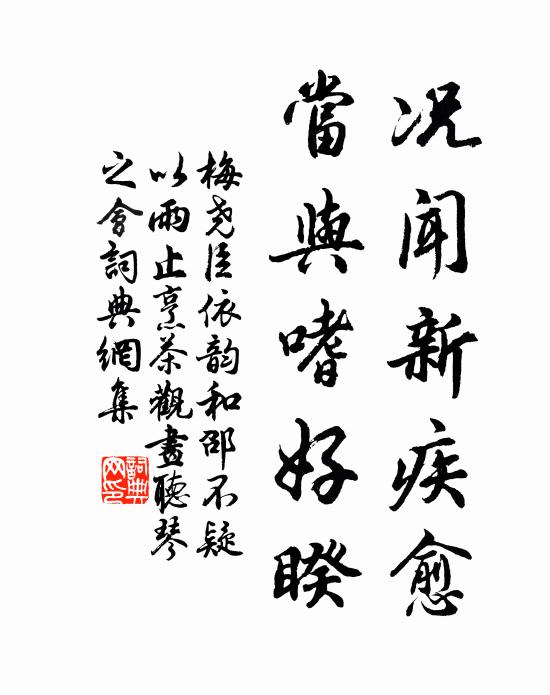 况闻新疾愈
當與嗜好睽
梅尧臣依韵和邵不疑
以雨止烹茶觀畫聽琴
之會詞典網集
詞典
网印